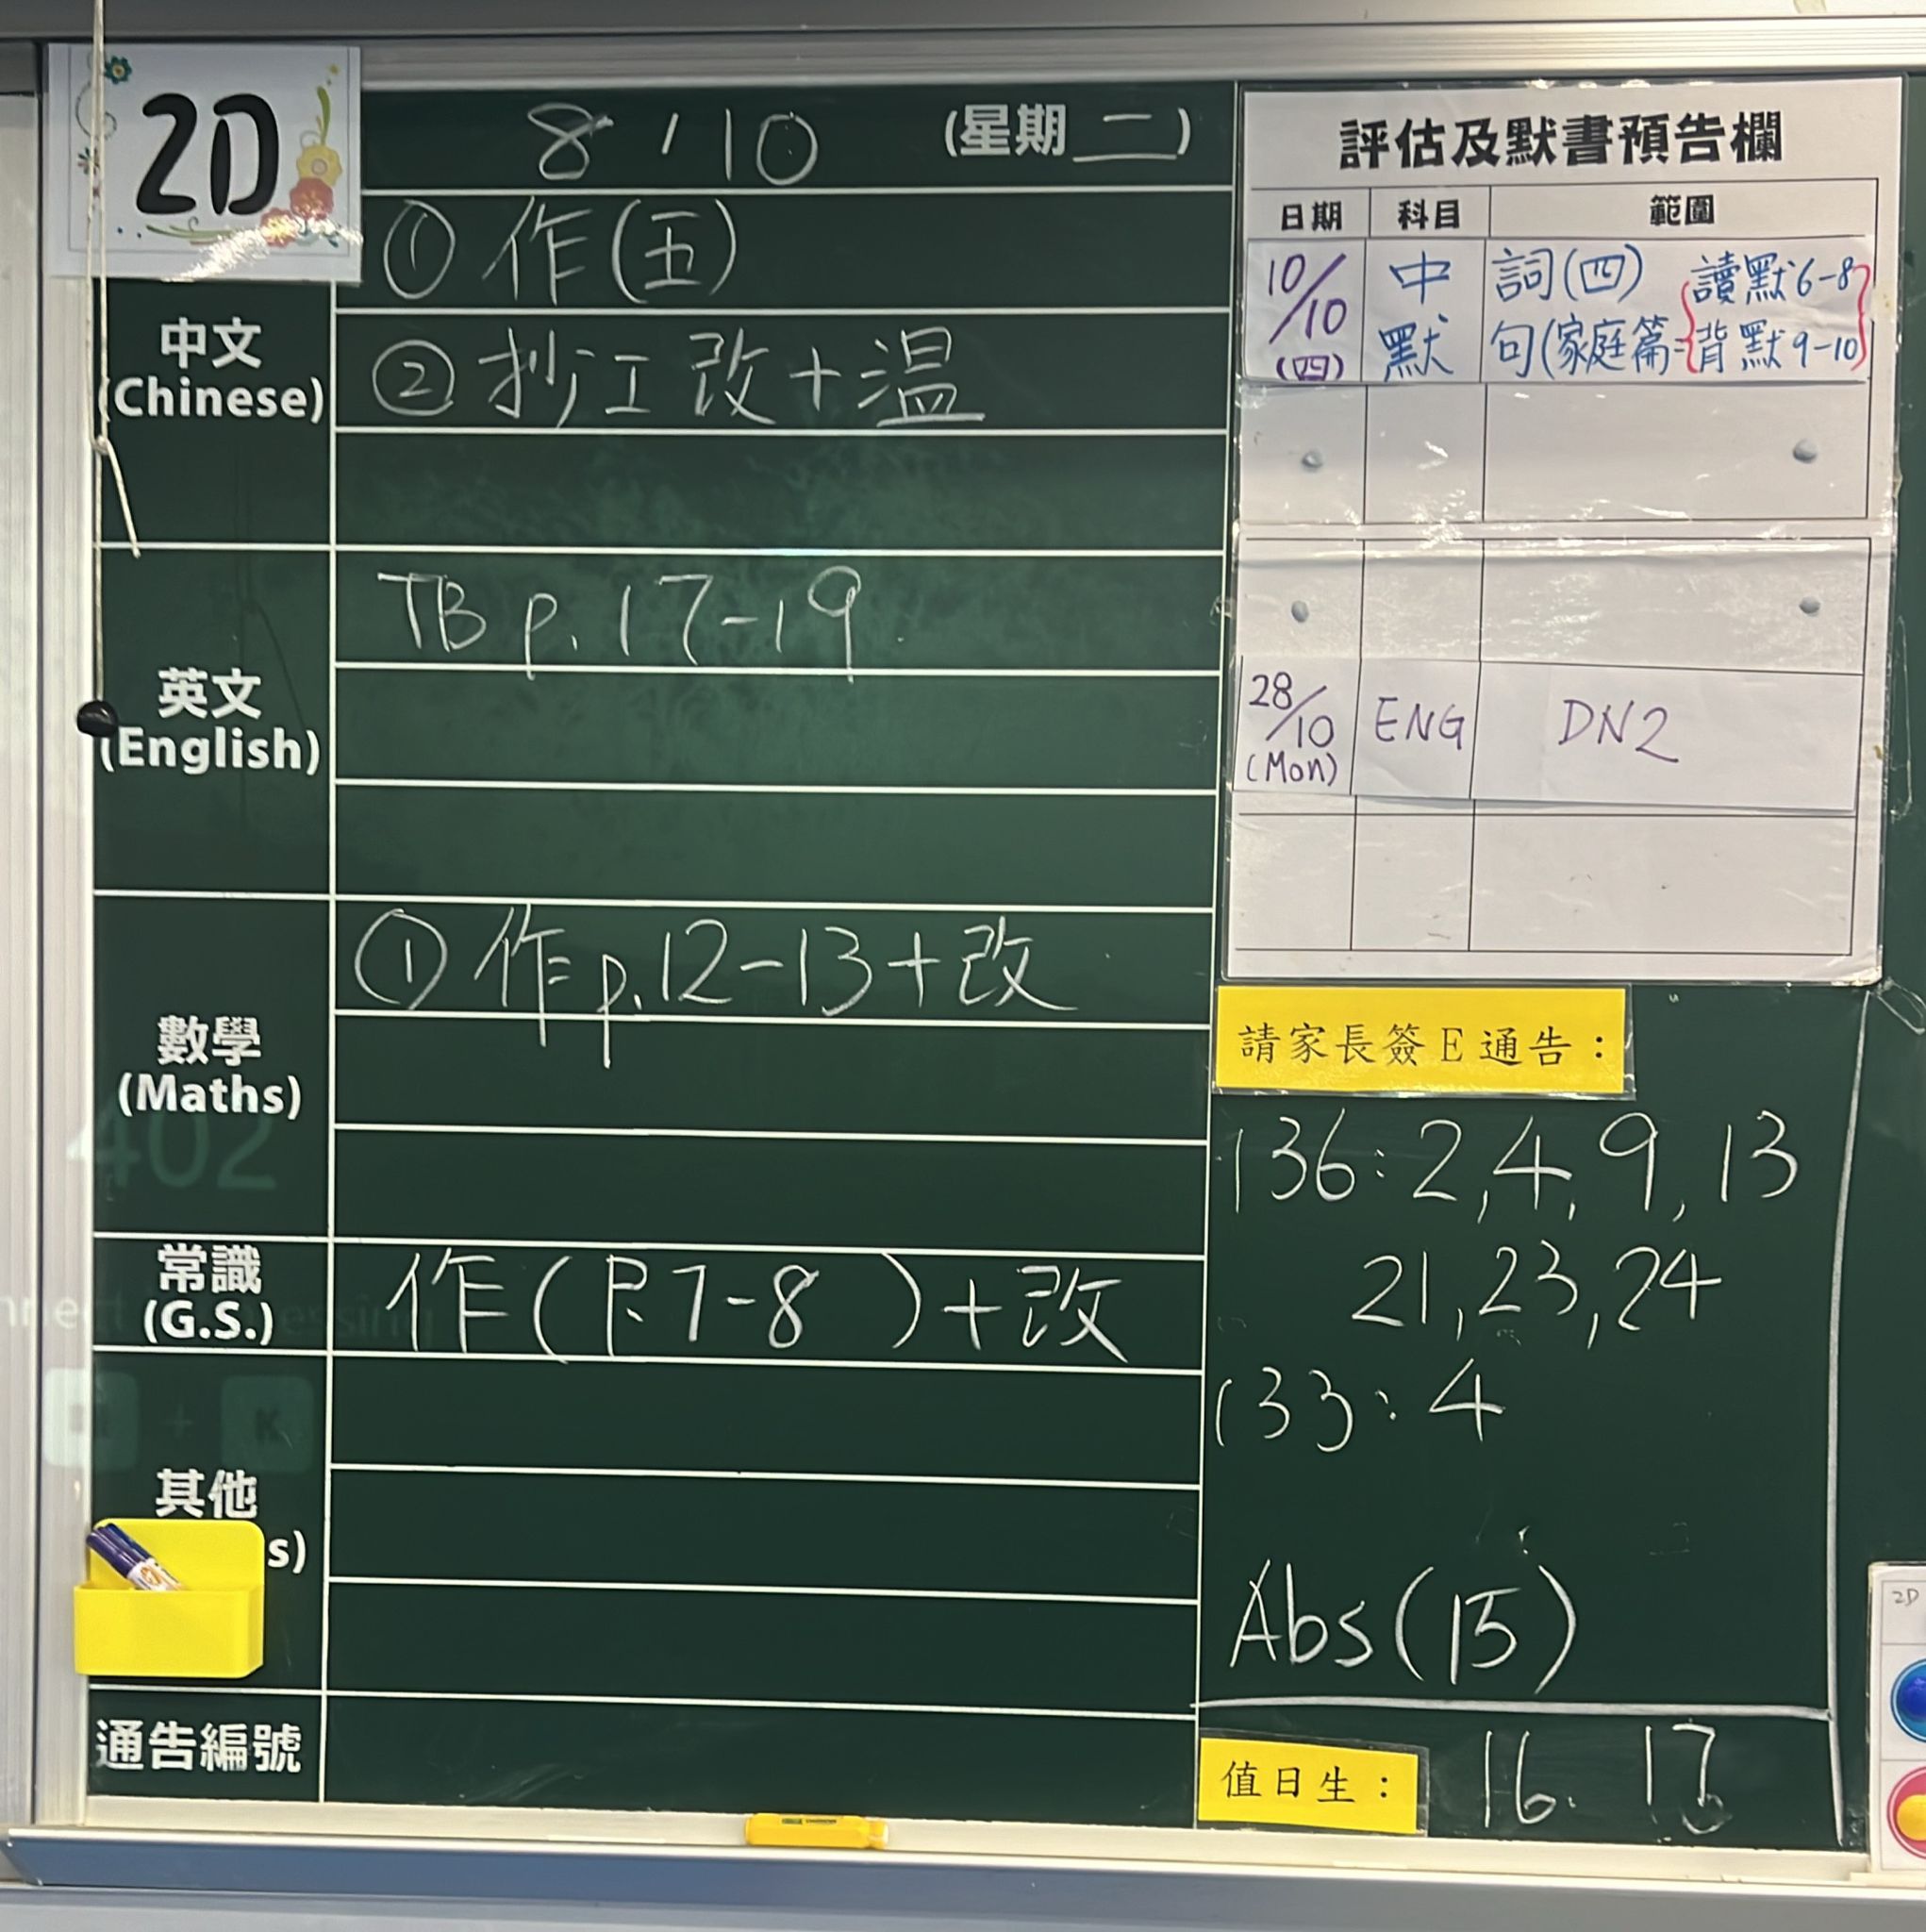 2D
8 / 10 (星期 二)
① 作(五)
中文
(Chinese)
② 抄工改+温
英文
(English)
TB p. 17-19
數學
(Maths)
① 作 p.12-13+改
常識
(G.S.)
作(P.7-8 )+改
其他
s)
通告編號
評估及默書預告欄
日期 科目 範圍
10/10 (四) 中默 詞(四) 讀默6-8
句(家庭篇= 背默9-10
28/10 (Mon) ENG DN2
請家長簽E通告:
136: 2,4,9,13
21,23,24
133: 4
Abs(15)
值日生: 16. 17
402
K
2D